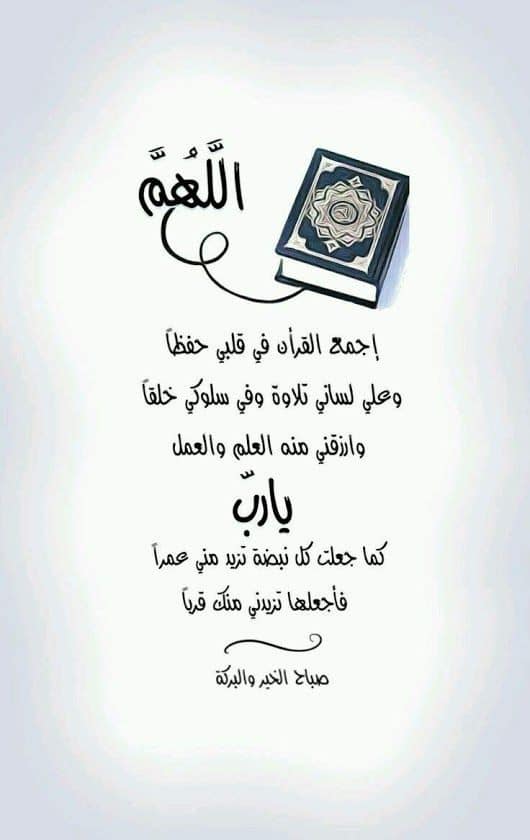 اللَّهُمَّ
إجمع القرأن في قلبي حفظاً
وعلي لساني تلاوة وفي سلوكي خلقاً
وارزقني منه العلم والعمل
ياربّ
كما جعلت كل نبضة تزيد مني عمراً
فأجعلها تزيدني منك قرباً
صباح الخير والبركة